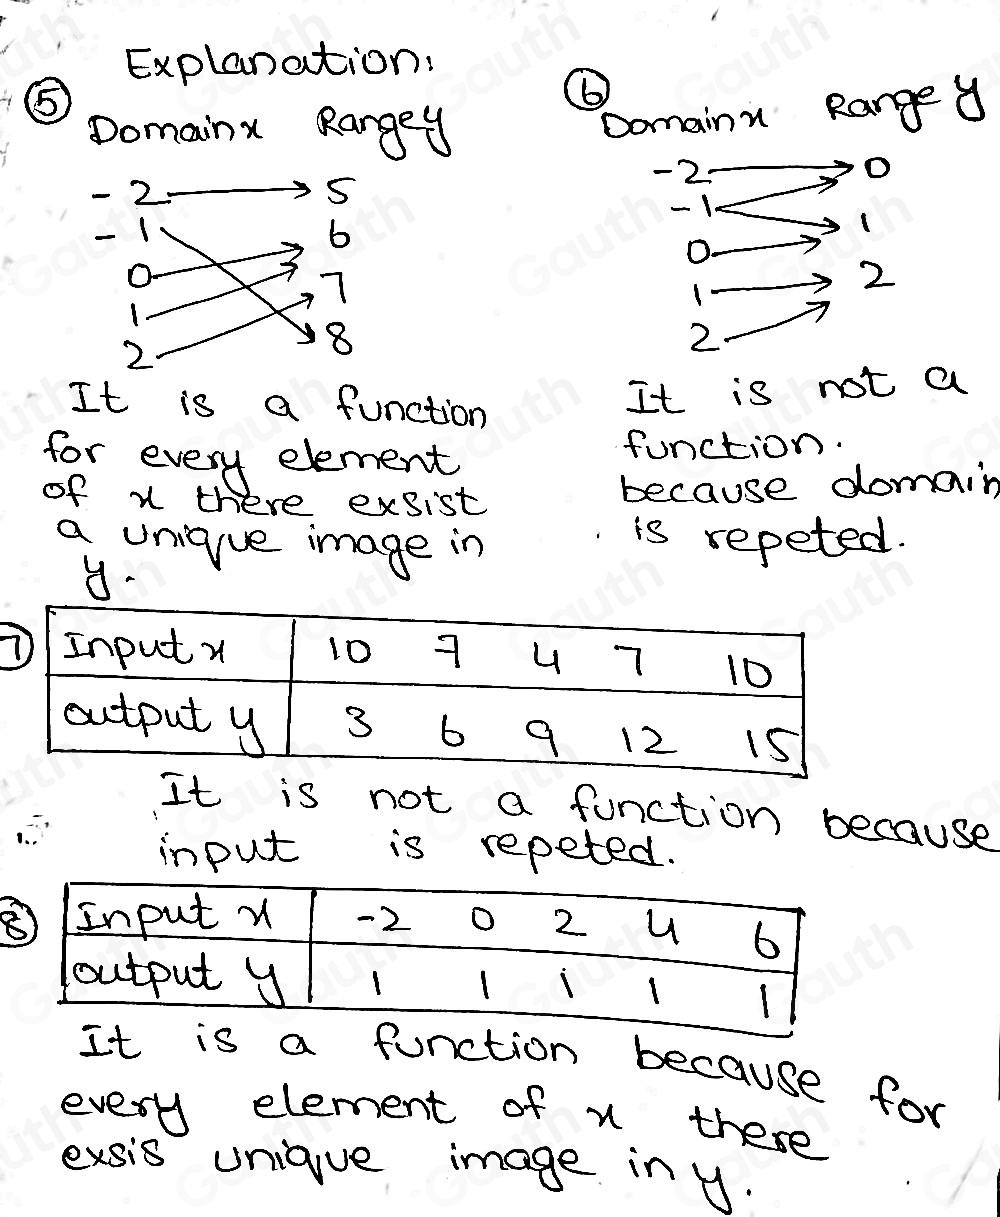 Explanation:
5
Domain x Range y
-2 5
-1 6
0 7
1 8
2
It is a function
for every element
of x there exsist
a unique image in
y.
6
Domain x Range y
-2 0
-1 1
0 2
1
2
It is not a
function.
because domain
is repeted.
7
Input x 10 7 4 7 10
output y 3 6 9 12 15
It is not a function because
input is repeted.
8
Input x -2 0 2 4 6
output y 1 1 1 1 1
It is a function because for
every element of x there
exsis unique image in y.